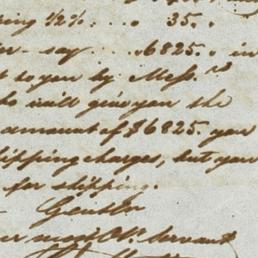 ing 1/2% . . . 35. .
er - say . . . $6825. . in
t to you by Mess.rs
ho will give you the
amount of $6825. you
hipping charges, but you
for shipping.
Gentn
Obt. Servant